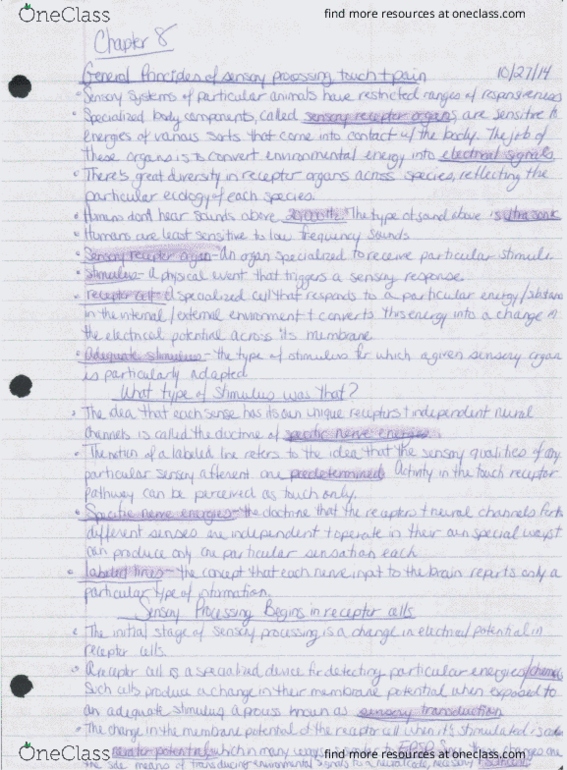 OneClass
find more resources at oneclass.com
Chapter 8
General Principles of sensory processing, touch + pain 10/27/14
• Sensory systems of particular animals have restricted ranges of responsiveness
• Specialized body components, called sensory receptor organs are sensitive to
energies of various sorts that come into contact w/ the body. The job of
these organs is to convert environmental energy into electrical signals
• There's great diversity in receptor organs across species, reflecting the
particular ecology of each species.
• Humans don't hear sounds above The type of sound above is ultrasonic
• Humans are least sensitive to low frequency sounds
• Sensory receptor organ - An organ specialized to receive particular stimuli.
• Stimulus - A physical event that triggers a sensory response
• receptor cell - A specialized cell that responds to a particular energy/
in the internal/external environment + converts this energy into a change in
the electrical potential across its membrane
• Adequate stimulus - the type of stimulus for which a given sensory organ
is particularly adapted
What type of stimulus was that?
• The idea that each sense has its own unique receptors + independent neural
channels is called the doctrine of specific nerve energies.
• The notion of a labeled line refers to the idea that the sensory qualities of any
particular sensory afferent are predetermined. Activity in the touch receptor
pathway can be perceived as touch only.
• Specific nerve energies - the doctrine that the receptors + neural channels for
different senses are independent + operate in their own special ways +
can produce only one particular sensation each.
• labeled lines - the concept that each nerve input to the brain reports only a
particular type of information.
Sensory Processing Begins in receptor cells
• The initial stage of sensory processing is a change in electrical potential in
receptor cells.
• A receptor cell is a specialized device for detecting particular energies/
Such cells produce a change in their membrane potential when exposed to
an adequate stimulus a process known as sensory transduction
• The change in the membrane potential of the receptor cell when it's stimulated is
potential, which in many ways
OneClass
find more resources at oneclass.com
the means of transducing environmental signals to a